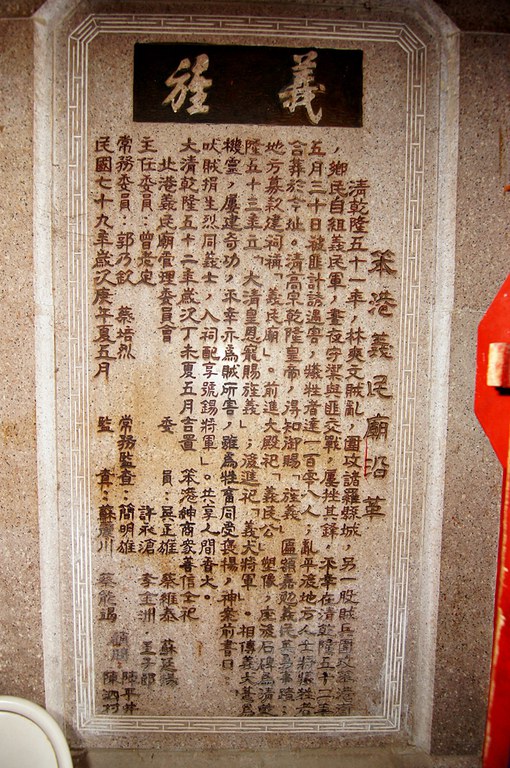 義旌
笨港義民廟沿革
清乾隆五十一年，林爽文賊亂，圍攻諸羅縣城，另一股賊兵圍攻笨港街
，鄉民自組義民軍，晝夜守禦與匪交戰，屢挫其鋒，不幸在清乾隆五十二年
五月三十日被匪計誘遇害，犧牲者達一百零八人；亂平後地方人士將犧牲者
合葬於今址。清高宗乾隆皇帝，得知御賜「旌義」匾額嘉勉義民
地方募款建祠稱「義民廟」。前進大殿祀「義民公」塑像，座後石碑為清乾
隆五十三年立「大清皇恩寵賜旌義」；後進祀「義犬將軍」。相傳義犬甚為
機靈，屢建奇功，不幸亦為賊所害，雖為牲畜同受褒揚，神案前書曰：
吠賊捐生烈同義士，入祠配享號錫將軍」。共享人間香火。
大清乾隆五十二年歲次丁未夏五月吉置　笨港紳商眾善信全祀
北港義民廟管理委員會　委員：吳正雄　蔡維泰　蘇延楊
主任委員：曾老定　許永滄　李金洲　王子郎
常務委員：郭乃欽　蔡培烈　常務監查：簡明雄　顧問：陳平井
民國七十九年歲次庚午夏五月　監查：蘇慶川　蔡能竭　陳泗村